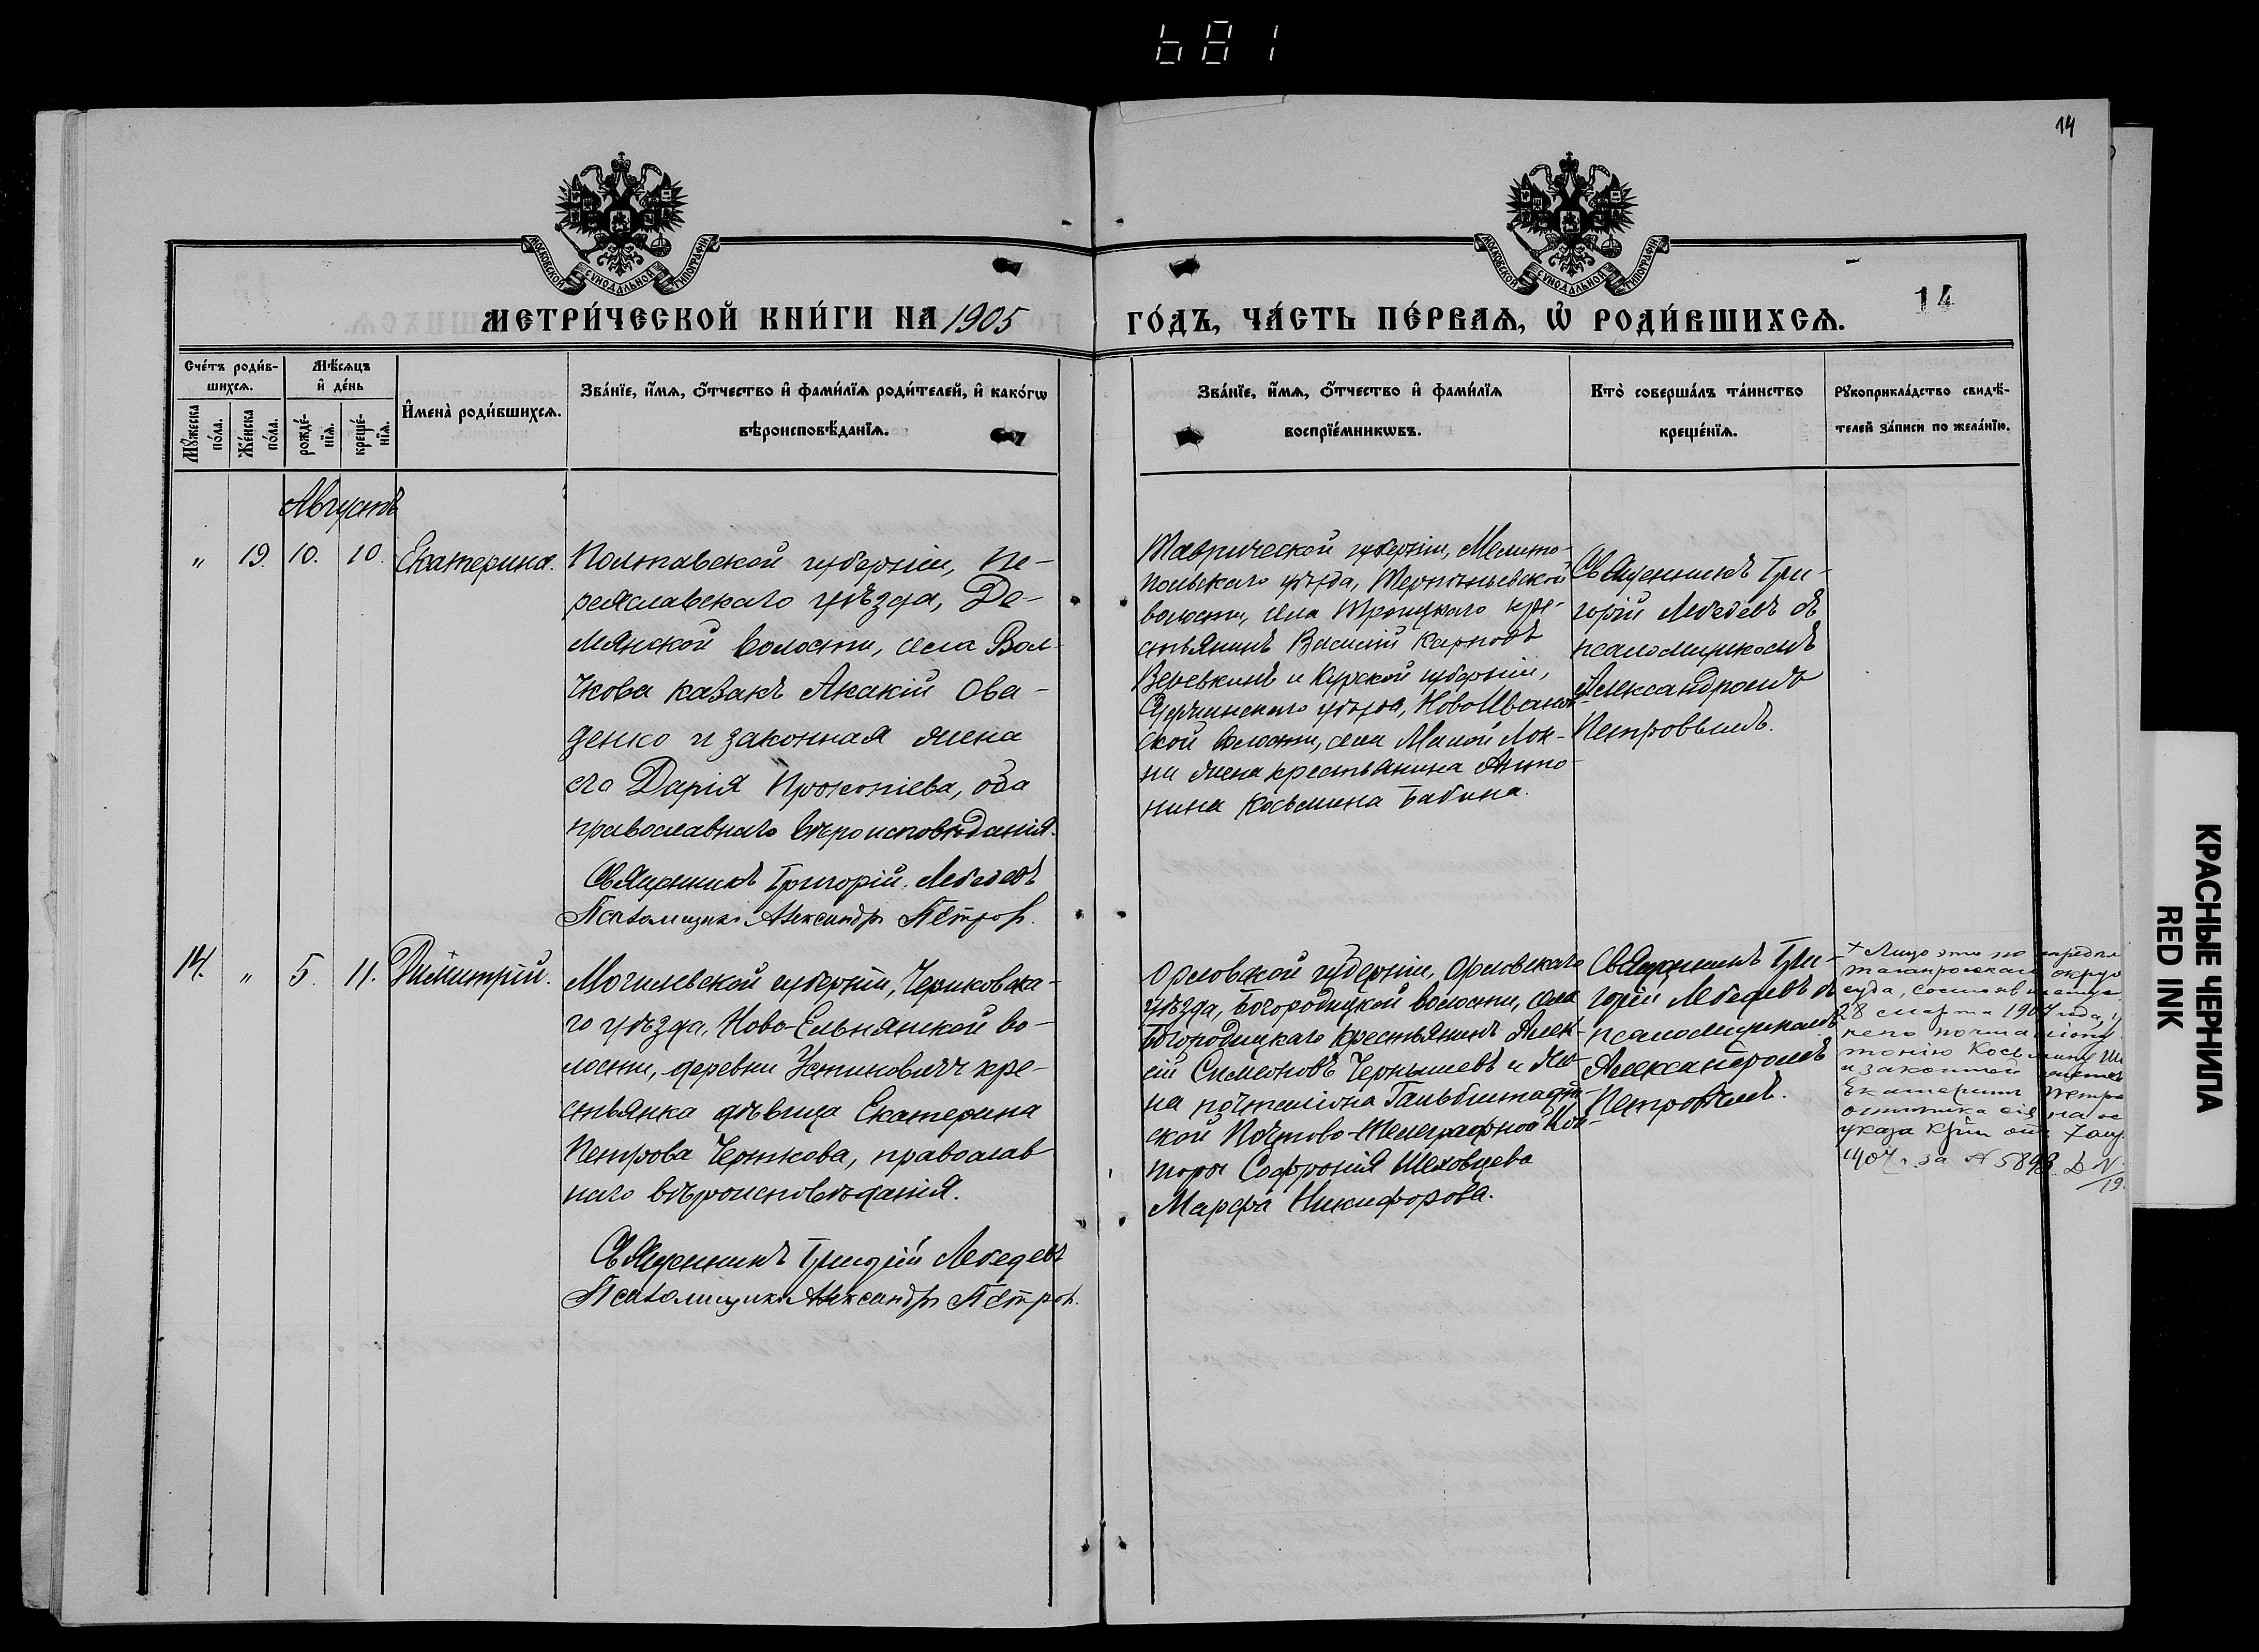 681
14
МОСКОВСКОЙ СѴНОДАЛЬНОЙ ТИПОГРАФІИ
МОСКОВСКОЙ СѴНОДАЛЬНОЙ ТИПОГРАФІИ
14
МЕТРИ́ЧЕСКОЙ КНИ́ГИ НА 1905
ГО́ДЪ, ЧА́СТЬ ПЕ́РВАѦ, Ѡ҆ РОДИ́ВШИХСѦ.
Сче́тъ роди́в-
шихсѧ.
Мꙋ́жеска
по́ла.
Же́нска
по́ла.
Мѣ́сѧцъ
и҆ де́нь
рожде́-
нїѧ.
креще́-
нїѧ.
И҆мена̀ роди́вшихсѧ.
Зва́нїе, и҆́мѧ, ѻ҆́тчество и҆ фами́лїѧ роди́телей, и҆ како́гѡ
вѣроисповѣ́данїѧ.
Зва́нїе, и҆́мѧ, ѻ҆́тчество и҆ фами́лїѧ
воспрїе́мникѡвъ.
Кто̀ соверша́лъ та́инство
креще́нїѧ.
Рꙋкоприкла́дство свидѣ́-
телей за́писи по жела́нїю.
Августъ
„ 19. 10. 10. Екатерина.
Полтавской губерніи, Пе-
реяславскаго уѣзда, Де-
мянской волости, села Вол-
чкова казакъ Акакій Ова-
денко и законная жена
его Дарія Прокопіева, оба
православнаго вѣроисповѣданія.
Священникъ Григорій Лебедевъ
Псаломщикъ Александръ Петровъ.
Таврической губерніи, Мелито-
польскаго уѣзда, Терпѣньевской
волости, села Троицкаго кре-
стьянинъ Василій Карповъ
Веревкинъ и Курской губерніи,
уѣзда, Ново Иванов-
ской волости, села Малой Лок-
ни жена крестьянина Анто-
нина Косьмина Бабина.
Священникъ Гри-
горій Лебедевъ съ
псаломщикомъ
Александромъ
Петровымъ.
14. „ 5. 11. Димитрій.
Могилевской губерніи, Чериковска-
го уѣзда, Ново-Ельнянской во-
лости, деревни Устиновичъ кре-
стьянка дѣвица Екатерина
Петрова Черткова, православ-
наго вѣроисповѣданія.
Священникъ Григорій Лебедевъ
Псаломщикъ Александръ Петровъ.
Орловской губерніи, Орловскаго
уѣзда, Богородицкой волости, села
Богородицкаго крестьянинъ Алек-
сій Симеоновъ Чернышевъ и же-
на почталіона Гальбштадт-
ской Почтово-Телеграфной Кон-
торы Софронія Шеховцева
Марфа Никифорова.
Священникъ Гри-
горій Лебедевъ съ
псаломщикомъ
Александромъ
Петровымъ.
+ Лицо это по опредѣл
таганрогскаго окруж
суда, состоявшемуся
28 марта 1907 года,
почталіону
тонію Косьмину
и законной женѣ
Екатеринѣ Петро
отмѣтка сія на ос
указа от 7 авг.
1907 г. за № 5893.
КРАСНЫЕ ЧЕРНИЛА
RED INK